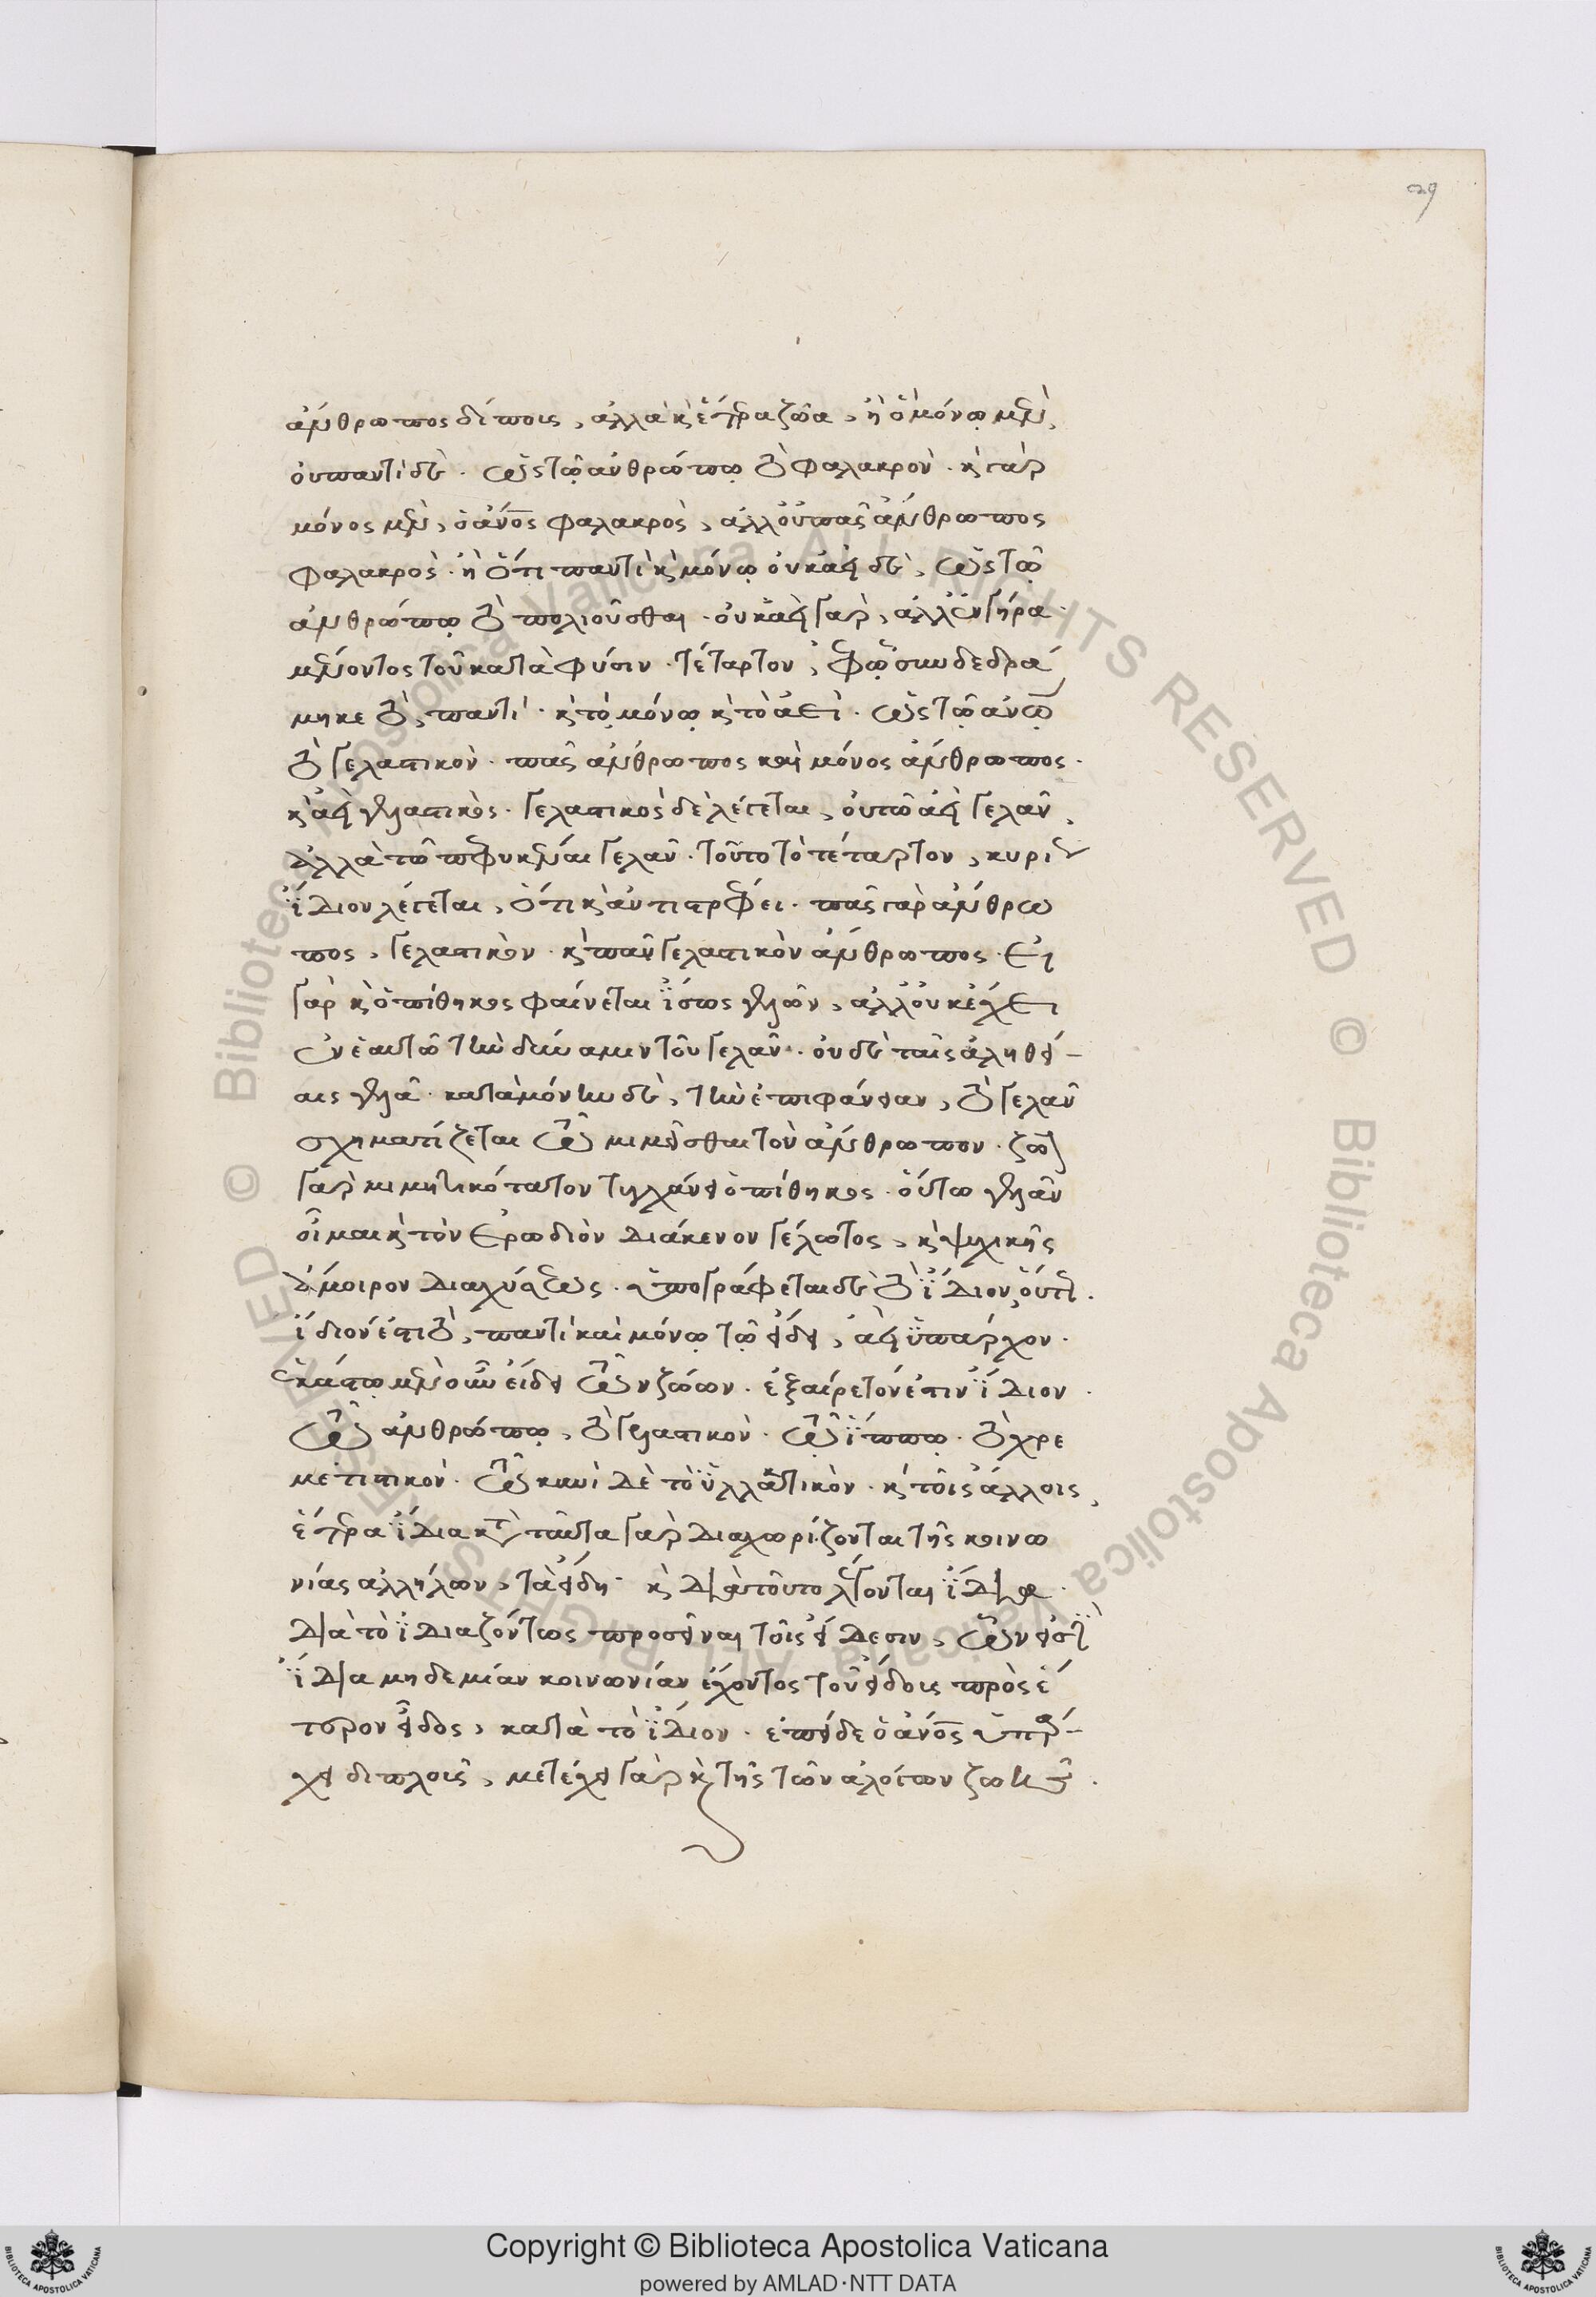 29
ἄνθρωπος δίπους, ἀλλὰ κ ἕτερα ζῶα, ἢ ὃ μόνω μὲν,
οὐ παντὶ δὲ. ὡς τῶ ἀνθρώπω τὸ φαλακρὸν. κ γὰρ
μόνος μὲν, ὁ ἄνος φαλακρὸς, ἀλλ οὐ πᾶς ἄνθρωπος
φαλακρὸς. ἢ ὅτι παντὶ κ μόνω οὐκ ἀεὶ δὲ, ὡς τῶ
ἀνθρώπω τὸ πολιοῦσθαι. οὐκ ἀεὶ γὰρ, ἀλλ ἐν γήρα
μένοντος τοῦ κατὰ φύσιν. τέταρτον, ἐφ ὧ συνδεδρά
μηκε τὸ, παντὶ. κ τὸ μόνω κ τὸ ἀεὶ. ὡς τῶ ἀνω
τὸ γελαστικὸν. πᾶς ἄνθρωπος καὶ μόνος ἄνθρωπος.
κ ἀεὶ γελαστικὸς. γελαστικὸς δὲ λέγεται, οὐ τῶ ἀεὶ γελᾶν,
ἀλλὰ τῶ πεφυκέναι γελᾶν. τοῦτο τὸ τέταρτον, κυρίως
ἴδιον λέγεται, ὅτι κ ἀντιστρέφει. πᾶς γὰρ ἄνθρω
πος, γελαστικὸν. κ πᾶν γελαστικὸν ἄνθρωπος. εἰ
γὰρ κ ὁ πίθηκος φαίνεται ἴσως γελῶν, ἀλλ οὐκ ἔχει
ἐν ἑαυτῶ τὴν δύναμιν τοῦ γελᾶν. οὐδὲ ταῖς ἀληθεί-
αις γελᾶ. κατὰ μόνην δὲ, τὴν ἐπιφάνειαν, τὸ γελᾶν
σχηματίζεται τῶ μιμεῖσθαι τὸν ἄνθρωπον. ζῶον
γὰρ μιμητικότατον τυγχάνει ὁ πίθηκος. οὕτω γελᾶν
οἶμαι κ τὸν ἐρωδιὸν διάκενον γέλωτος, κ ψυχικῆς
ἄμοιρον διαχύσεως. ὑπογράφεται δὲ τὸ ἴδιον, οὕτως.
ἴδιον ἐστὶ τὸ, παντὶ καὶ μόνω τῶ εἴδει, ἀεὶ ὑπάρχον.
ἑκάστω μὲν οὖν εἴδει τῶν ζώων. ἐξαίρετόν ἐστιν ἴδιον.
τῶ ἀνθρώπω, τὸ γελαστικὸν. τῶ ἵππω. τὸ χρε
μετιστικὸν. τῶ κυνὶ δὲ τὸ ὑλλακτικὸν. κ τοῖς ἄλλοις,
ἕτερα ἴδια κτ ταῦτα γὰρ διαχωρίζονται τῆς κοινω
νίας ἀλλήλων, τὰ εἴδη κ διὰ τοῦτο λέγονται ἴδια.
διὰ τὸ ἰδιαζόντως προσεῖναι τοῖς εἴδεσιν, ὧν εἰσὶ
ἴδια μηδεμίαν κοινωνίαν ἔχοντος τοῦ εἴδους πρὸς ἕ
τερον εἶδος, κατὰ τὸ ἴδιον. ἐπεὶ δὲ ὁ ἄνος ὑπάρ-
χει διπλοῦς, μετέχει γὰρ κ τῆς τῶν ἀλόγων ζωῆς.
Copyright © Biblioteca Apostolica Vaticana
powered by AMLAD·NTT DATA